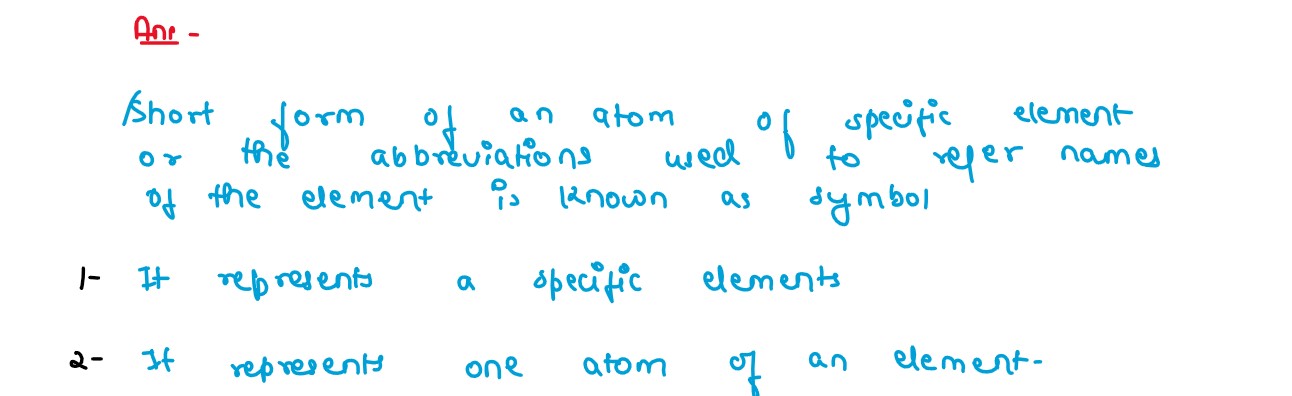 Ans -
Short form of an atom of specific element
or the abbreviations used to refer names
of the element is known as symbol
1- It represents a specific elements
2- It represents one atom of an element-